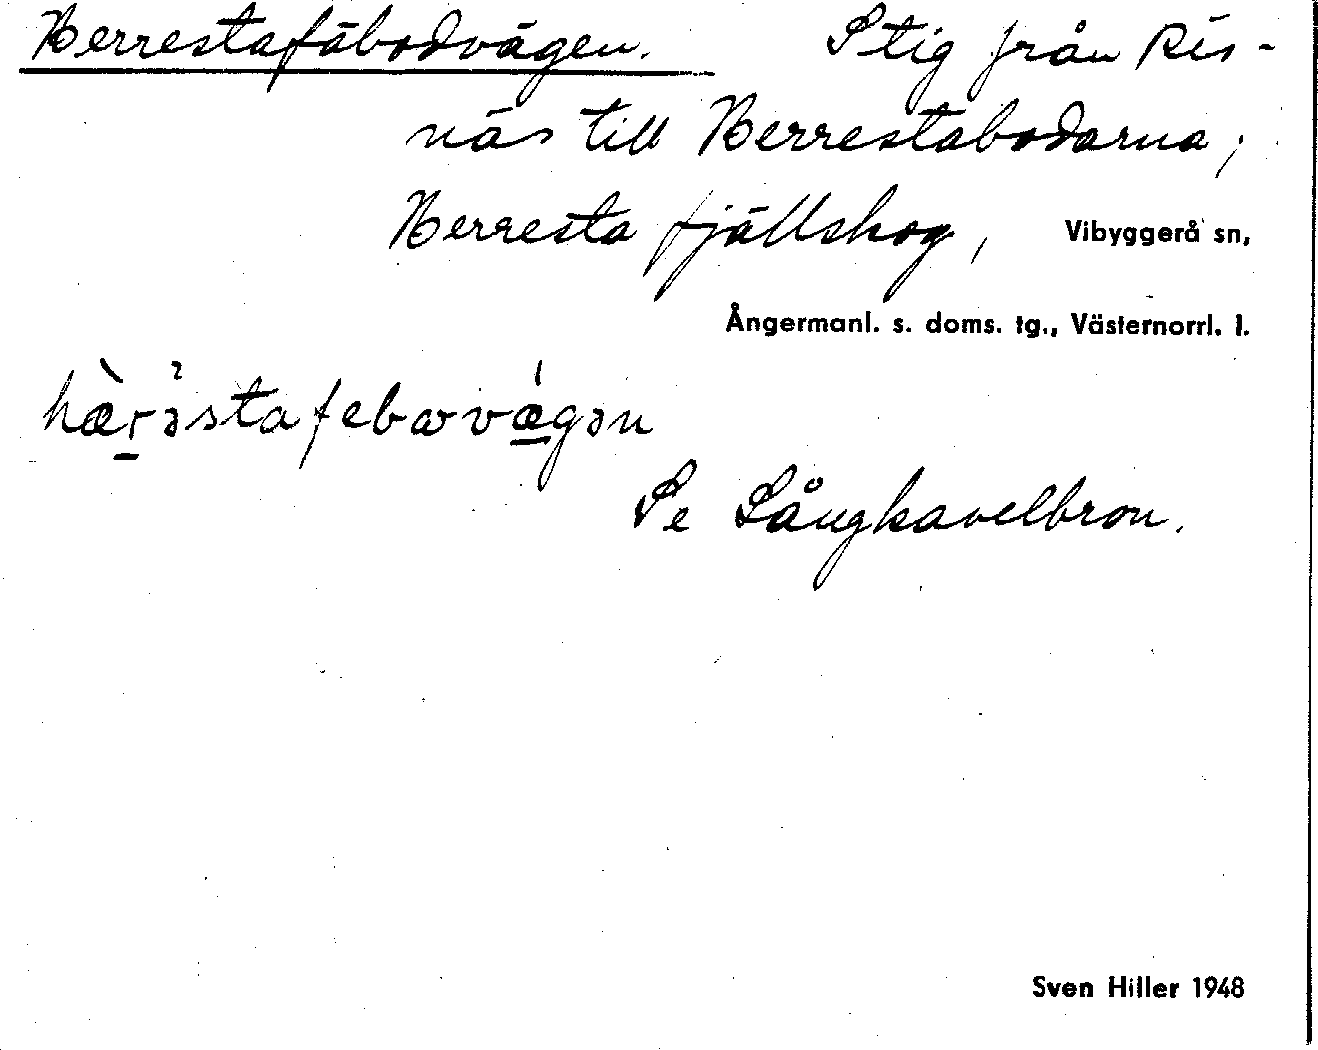 Herrestafäbodvägen. Stig från Ris-
näs till Herrestabodarna;
Herresta fjällskog, Vibyggerå sn,
Ångermanl. s. doms. tg., Västernorrl. l.
hær̠əstafebωvæ̠gən
Se Långkavelbron.
Sven Hiller 1948